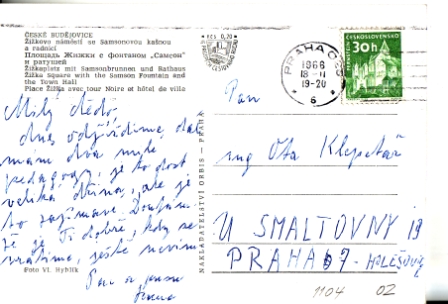 ČESKÉ BUDĚJOVICE
Žižkovo náměstí se Samsonovou kašnou
a radnicí
Площадь Жижки с фонтаном „Самсон"
и ратушей
Žižkaplatz mit Samsonbrunnen und Rathaus
Žižka Square with the Samson Fountain and
the Town Hall
Place Žižka avec tour Noire et hôtel de ville
Kčs 0,70
PRAHA 025
1966
18-11
19-20
6
ČESKOSLOVENSKO
30h
Milý dědo,
dnes odjíždíme, dal
mám dva
pedagogy, je to dost
veliká dřina, ale je
to zajímavé. Doufám,
že je Ti dobře, kdy se
vrátíme, ještě nevím
Foto Vl. Hyhlík
NAKLADATELSTVÍ ORBIS - PRAHA
Pan
ing Ota Klepetář
U SMALTOVNY
PRAHA 7 - HOLEŠOVICE
1104 02